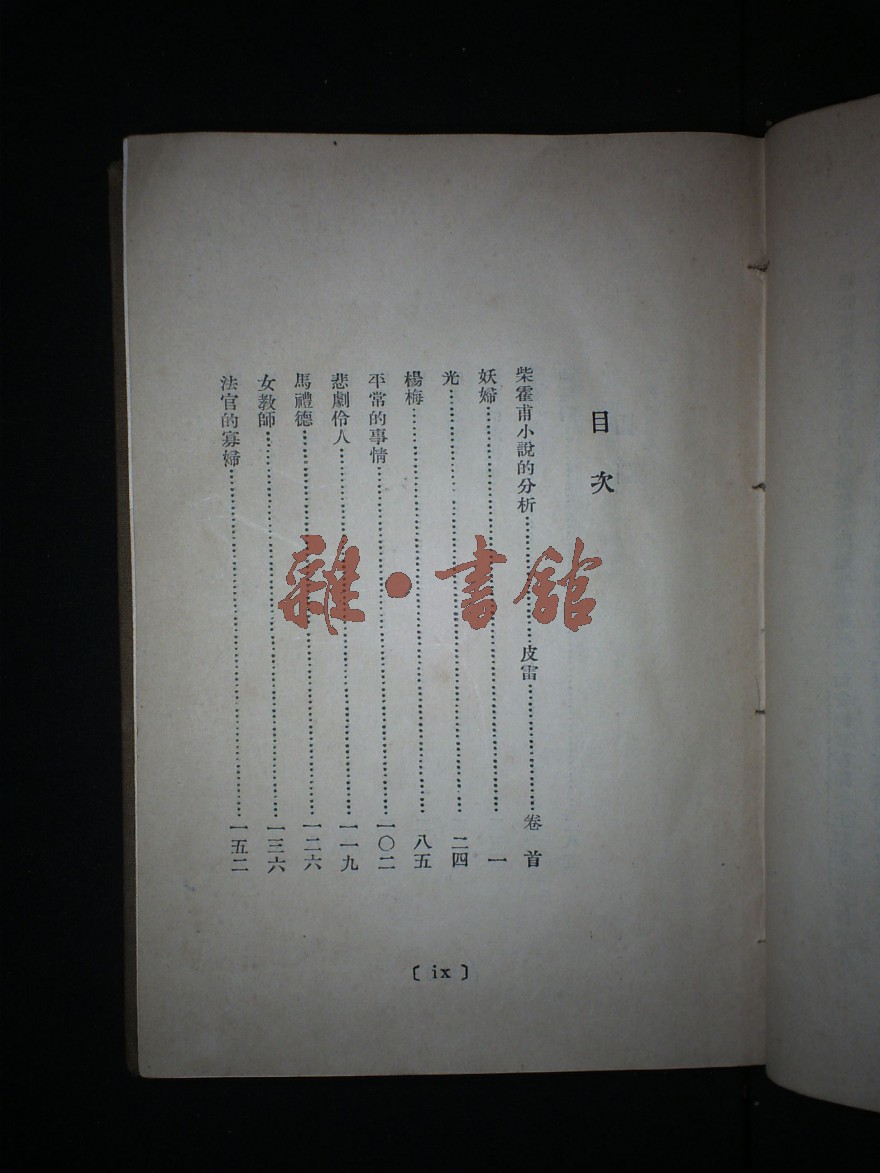 目次
柴霍甫小說的分析……………皮雷……………卷首
妖婦……………一
光……………二四
楊梅……………八五
平常的事情……………一〇二
悲劇伶人……………一一九
馬禮德……………一二六
女教師……………一三六
法官的寡婦……………一五二
〔ix〕
雜•書館